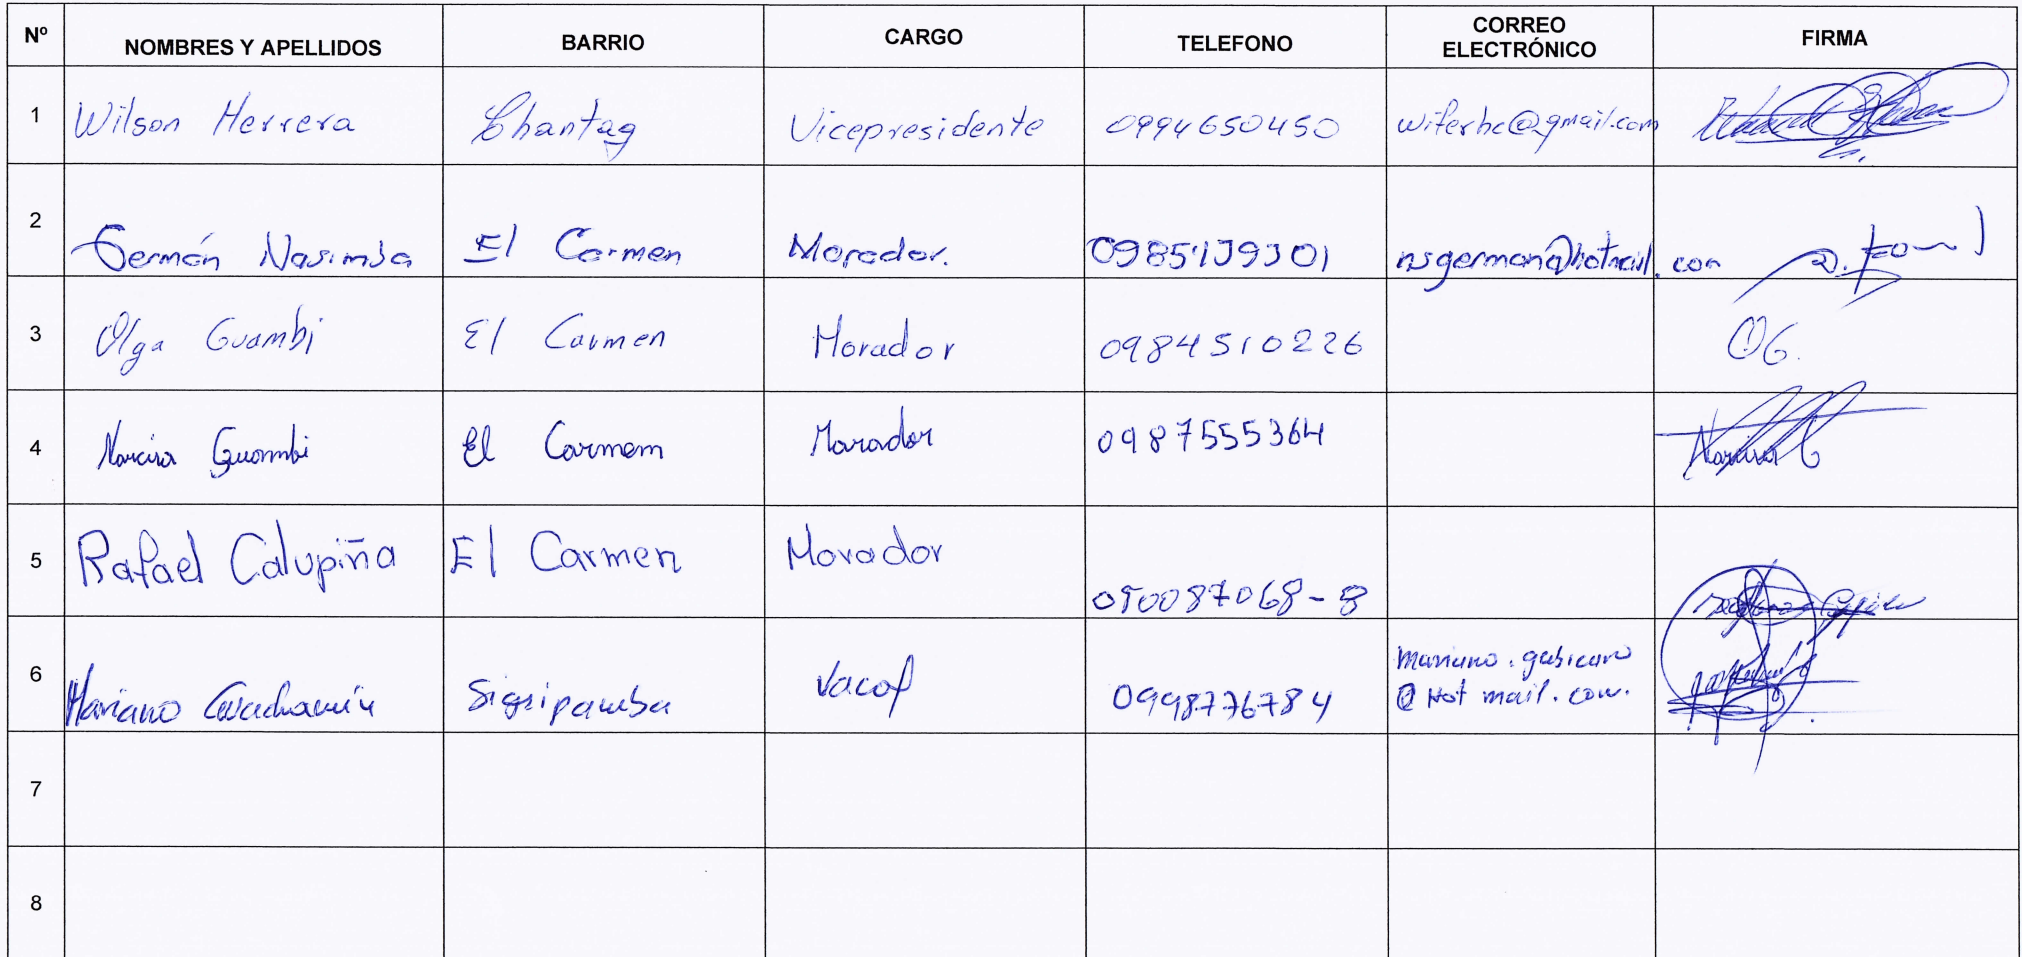 Nº NOMBRES Y APELLIDOS BARRIO CARGO TELEFONO CORREO ELECTRÓNICO FIRMA
1 Wilson Herrera Chantag Vicepresidente 0994650450 wiferhc@gmail.com
2 Germán Nasimba El Carmen Morador. nsgerman@hotmail.com
3 Olga Guambi El Carmen Morador 0984510226 OG.
4 Narcisa Guambi El Carmen Morador 0987555364
5 Rafael Calupiña El Carmen Morador 050087068-8
6 Mariano Guachamín Sigsipamba Vocal 0998776784
@Hotmail.com.
7
8